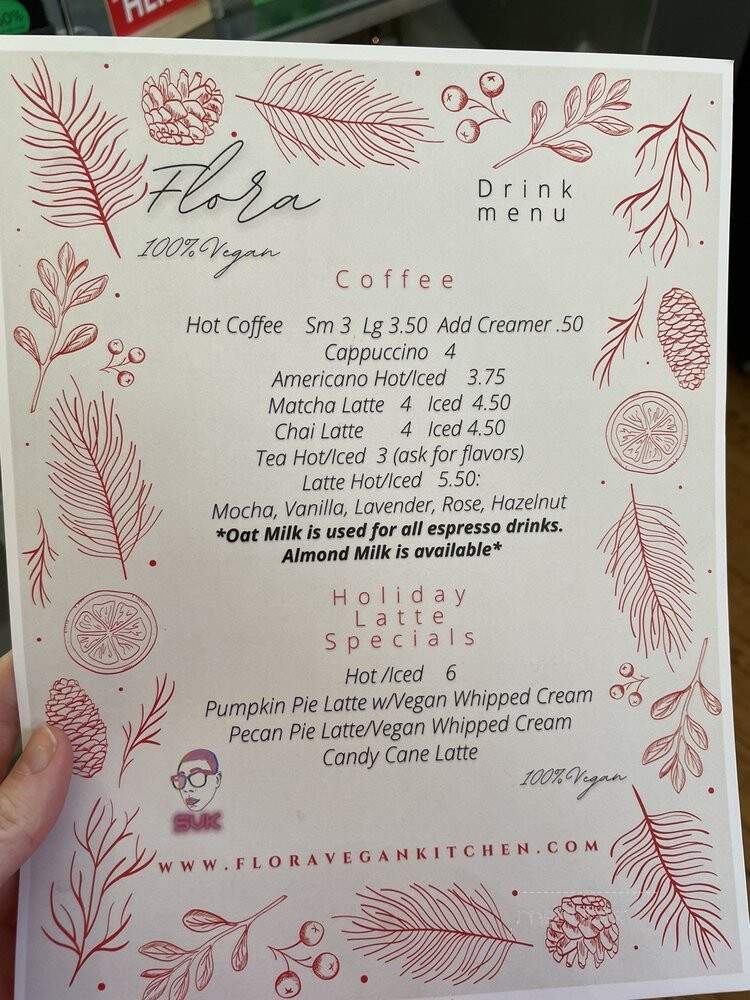 Flora
100% Vegan
Drink
menu
Coffee
Hot Coffee Sm 3 Lg 3.50 Add Creamer .50
Cappuccino 4
Americano Hot/Iced 3.75
Matcha Latte 4 Iced 4.50
Chai Latte 4 Iced 4.50
Tea Hot/Iced 3 (ask for flavors)
Latte Hot/Iced 5.50:
Mocha, Vanilla, Lavender, Rose, Hazelnut
*Oat Milk is used for all espresso drinks.
Almond Milk is available*
Holiday
Latte
Specials
Hot /Iced 6
Pumpkin Pie Latte w/Vegan Whipped Cream
Pecan Pie Latte/Vegan Whipped Cream
Candy Cane Latte
100% Vegan
SVK
WWW.FLORAVEGANKITCHEN.COM